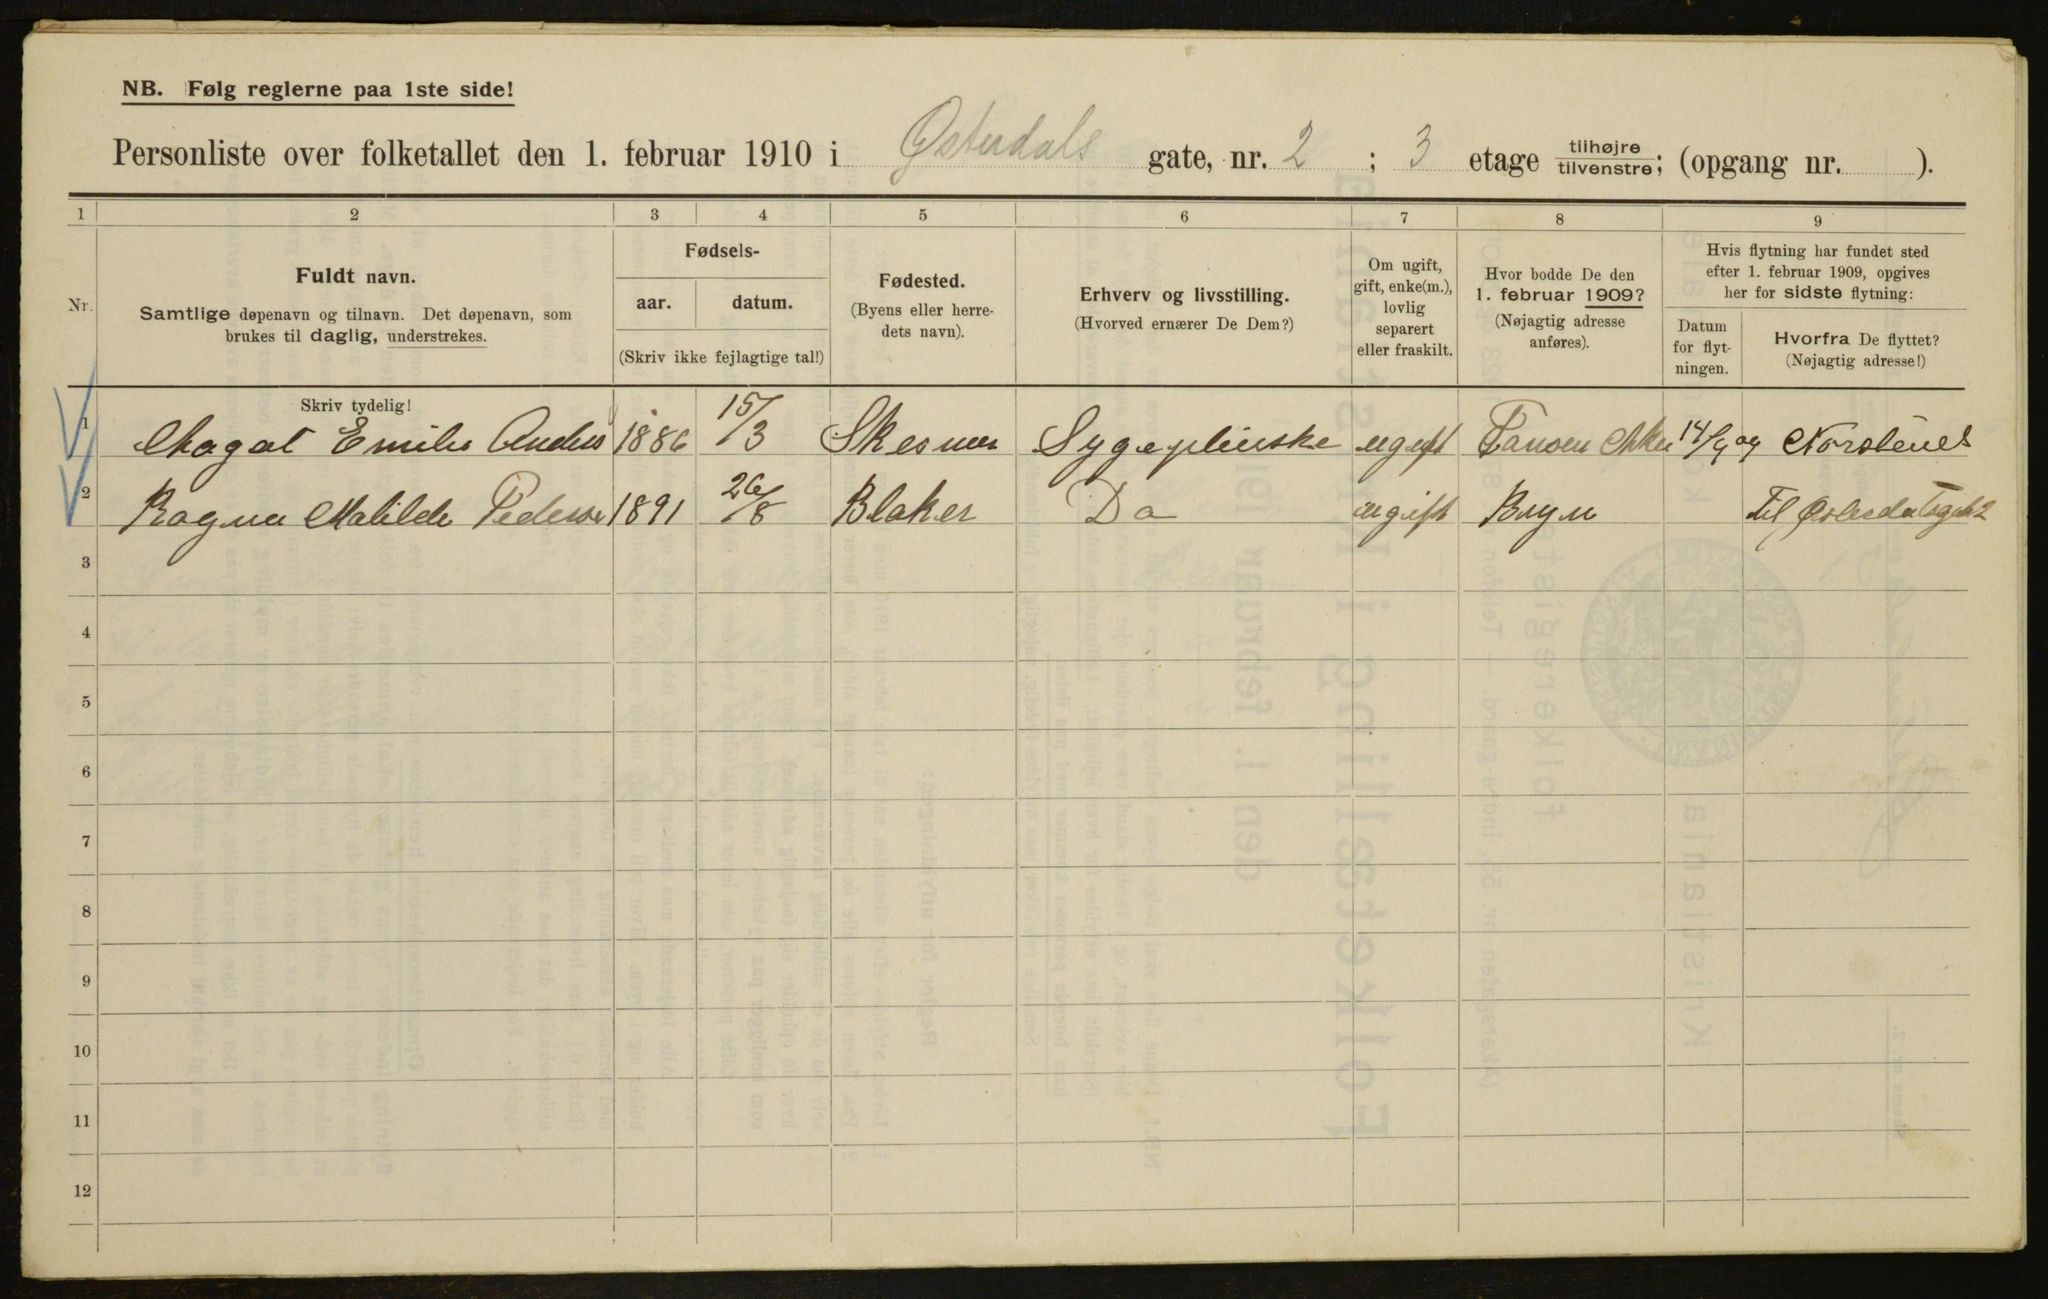 NB. Følg reglerne paa 1ste side!
Personliste over folketallet den 1. februar 1910 i Østerdals gate, nr. 2 ; 3 etage tilhøjre tilvenstre; (opgang nr. ).
1 2 3 4 5 6 7 8 9
Nr.
Fuldt navn.
Samtlige døpenavn og tilnavn. Det døpenavn, som
brukes til daglig, understrekes.
Fødsels-
aar. datum.
(Skriv ikke fejlagtige tal!)
Fødested.
(Byens eller herre-
dets navn).
Erhverv og livsstilling.
(Hvorved ernærer De Dem?)
Om ugift,
gift, enke(m.),
lovlig
separert
eller fraskilt.
Hvor bodde De den
1. februar 1909?
(Nøjagtig adresse
anføres).
Hvis flytning har fundet sted
efter 1. februar 1909, opgives
her for sidste flytning:
Datum
for flyt-
ningen.
Hvorfra De flyttet?
(Nøjagtig adresse!)
Skriv tydelig!
1 Emilie 1886 15/3 ugift
2 Ragna Matilde Pedersen 1891 26/8 Blaker Do ugift Bryn Til
3
4
5
6
7
8
9
10
11
12